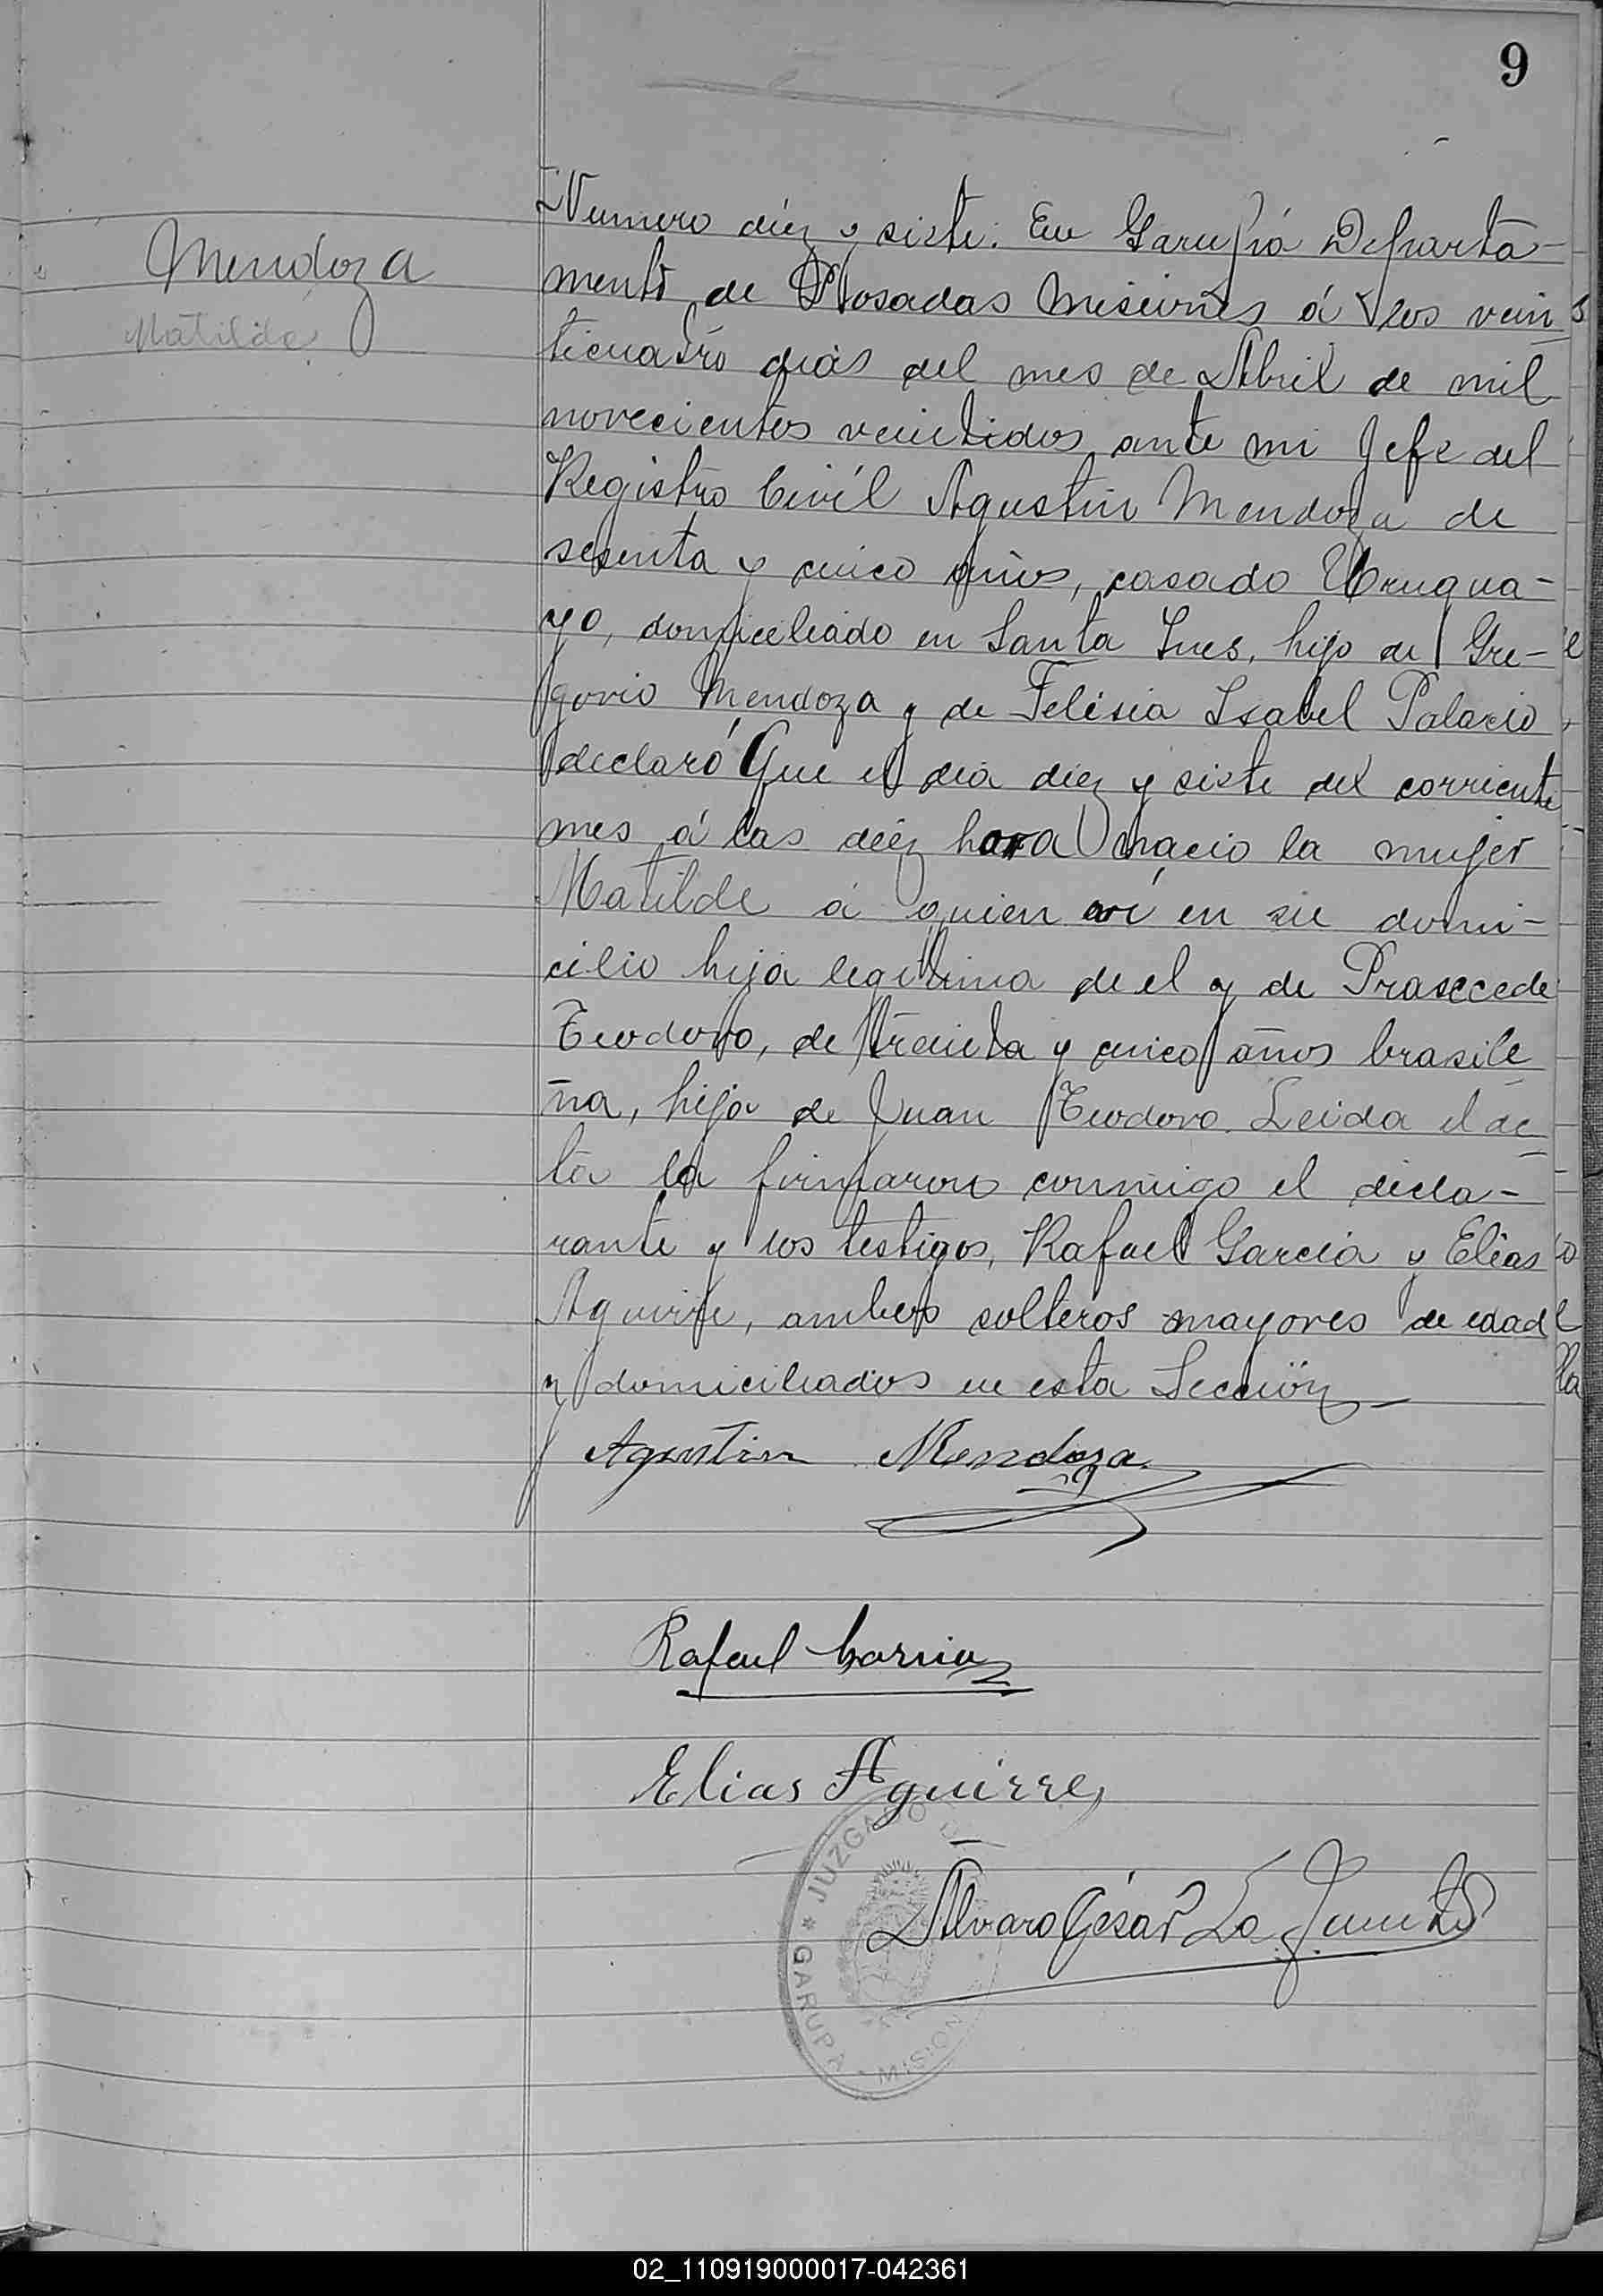 9
Mendoza
Matilde
Numero diez y siete. En Garupá Departa-
mento de Posadas Misiones á los vein
ticuatro dias del mes de Abril de mil
novecientos veintidos ante mi Jefe del
Registro Civil Agustin Mendoza de
sesenta y cinco años, casado Urugua-
yo, domiciliado en Santa Ines, hijo de Gre-
gorio Mendoza y de Felisia Isabel Palacio
declaró Que el dia diez y siete del corriente
mes á las diez hora nacio la mujer
Matilde á quien ví en su domi-
cilio hija legitima de el y de Prascede
Teodoro, de treinta y cinco años brasile
ña, hija de Juan Teodoro. Leida el ac
ta la firmaron conmigo el decla-
rante y los testigos, Rafael Garcia y Elias
Aguirre, ambos solteros mayores de edad
y domiciliados en esta Sección
Agustin Mendoza
Rafael Garcia
Elias Aguirre
JUZGADO
Alvaro César La
GARUPA MISION
02_110919000017-042361